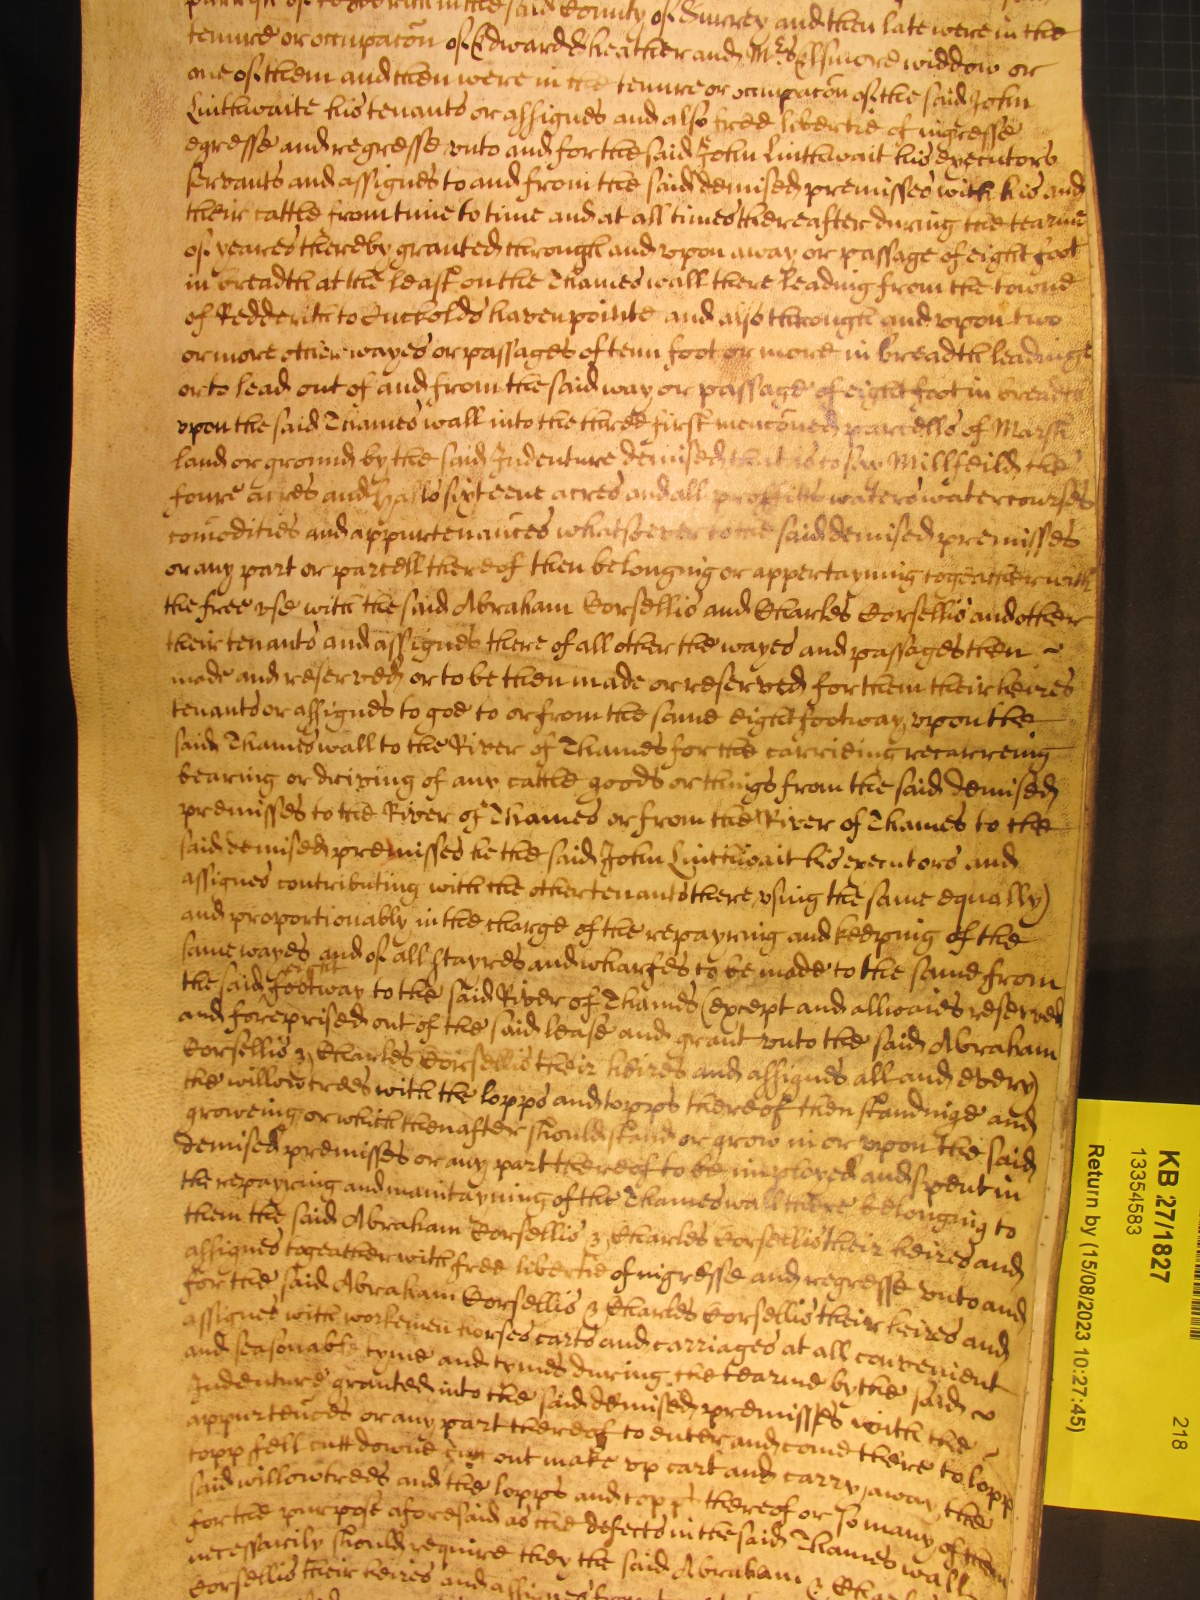 parrish of Redderith in the said County of Surrey and then late were in the
tenure or occupacõn of Edward Cheather and Mrs Ellsmore widdow or
one of them and then were in the tenure or occupacõn of the said John
Linthwaite his tenants or assignes and also free libertie of ingresse
egresse and regresse vnto and for the said John Linthwait his executors
servants and assignes to and from the said demised premisses with his and
their cattle from time to time and at all times thereafter during the tearme
of yeares thereby granted through and vpon a way or passage of eight foot
in breadth at the least on the Thames wall there leading from the towne
of Redderith to Cuckolds haven pointe and also through and vpon two
or more other wayes or passages of tenn foot or more in breadth leadinge
or to lead out of and from the said way or passage of eight foot in breadth
vpon the said Thames wall into the three first mencõned parcells of Marsh
land or ground by the said Indenture demised that is to say Millfeild the
foure acres and Halls sixteene acres and all proffitts waters watercourses
comodities and appurtenances whatsoever to the said demised premisses
or any part or parcell thereof then belonging or appertayning togeather with
the free vse with the said Abraham Corsellis and Charles Corsellis and other
their tenants and assignes there of all other the wayes and passages then
made and reserved or to be then made or reserved for them their heires
tenants or assignes to goe to or from the same eight foot way vpon the
said Thames wall to the River of Thames for the carrieing recarreing
bearing or driving of any cattle goods or things from the said demised
premisses to the River of Thames or from the River of Thames to the
said demised premisses he the said John Linthwait his executors and
assignes contributing with the other tenants there vsing the same equally
and proportionably in the charge of the repayring and keeping of the
same wayes and of all stayres and wharfes to be made to the same from
the said eight footway to the said River of Thames (except and allwaies reserved
and foreprised out of the said lease and grant vnto the said Abraham
Corsellis & Charles Corsellis their heires and assignes all and every
the willow trees with the lopps and topps thereof then standinge and
groweing or which thenafter should stand or grow in or vpon the said
demised premisses or any part thereof to be imployed and spent in
the repayring and maintayning of the Thames wall there belonging to
them the said Abraham Corsellis & Charles Corsellis their heires and
assignes togeather with free libertie of ingresse and regresse vnto and
for the said Abraham Corsellis & Charles Corsellis their heires and
assignes with workemen horses carts and carriages at all convenient
and seasonable tyme and tymes during the tearme by the said
Indenture granted into the said demised premisses with the
appurtences or any part thereof to enter and come there to lopp
topp fell cutt downe out make vp cart and carry away the
said willowtrees and the lopps and topps thereof or so many of them
for the purpose aforesaid as the defects in the said Thames wall
necessarily should require they the said Abraham & Charles
Corsellis their heires and assignes
KB 27/1827
13354583
Return by (15/08/2023 10:27:45)
218